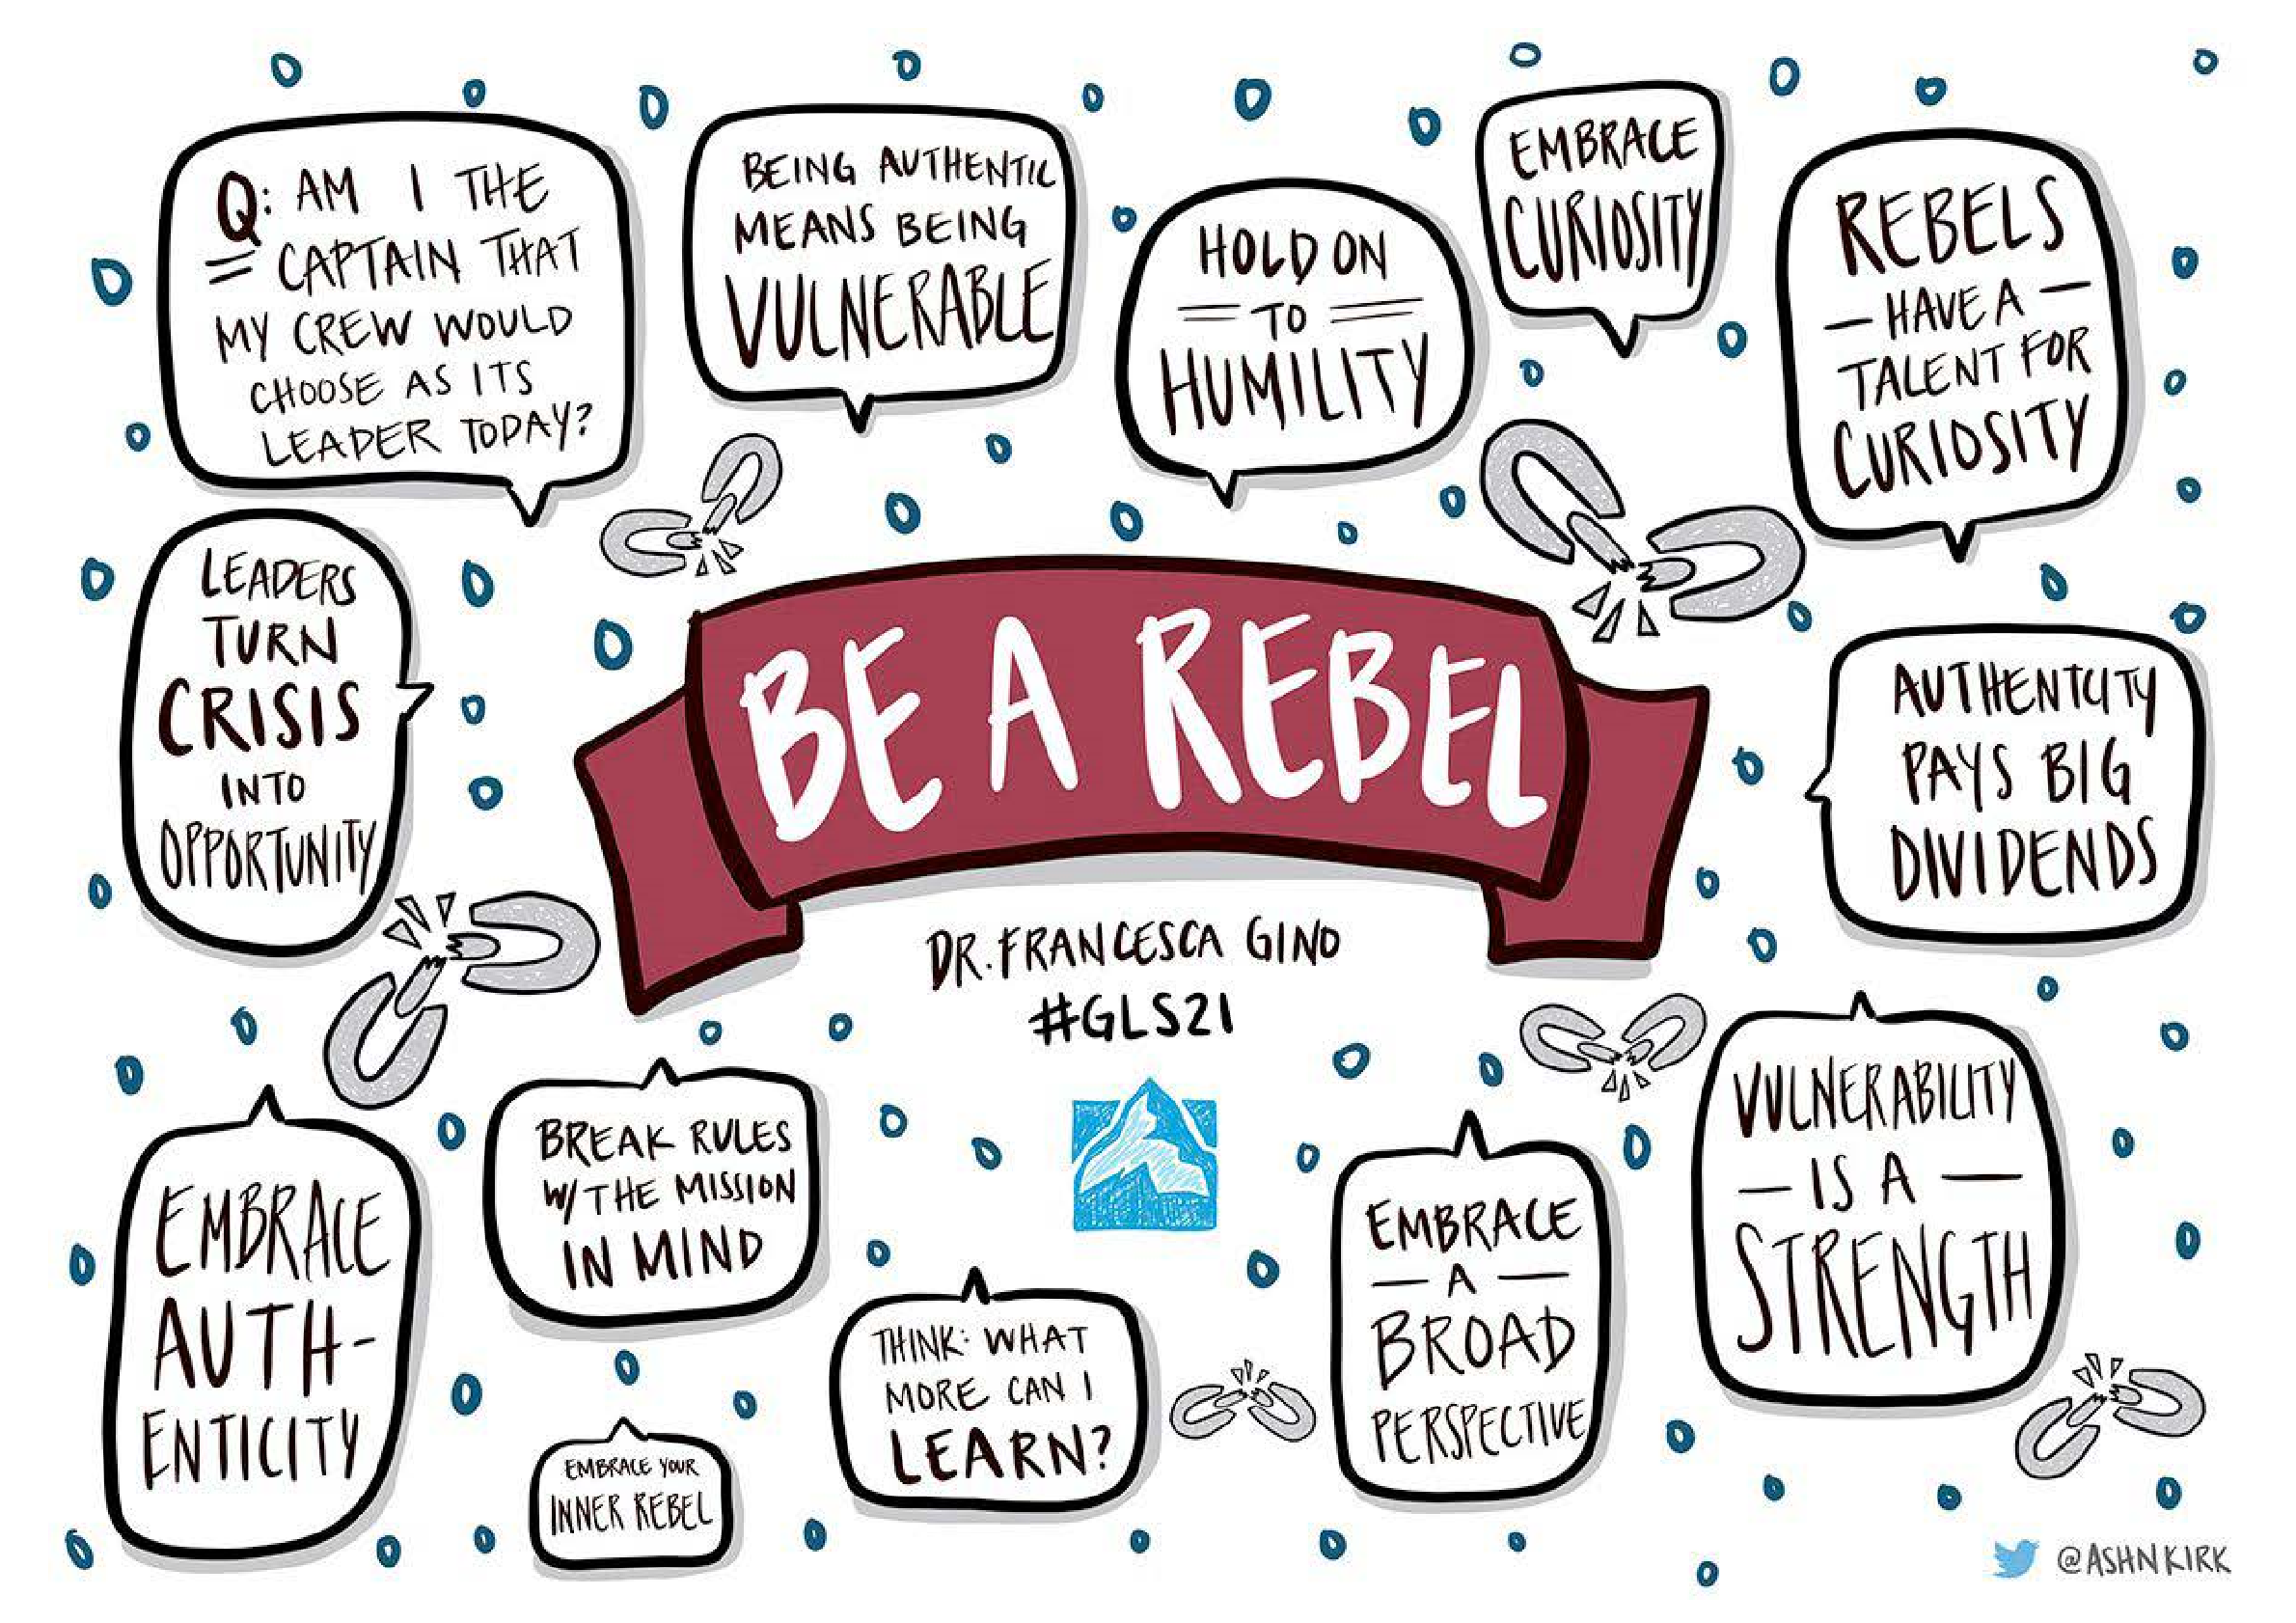 Q: AM I THE
CAPTAIN THAT
MY CREW WOULD
CHOOSE AS ITS
LEADER TODAY?
BEING AUTHENTIC
MEANS BEING
VULNERABLE
HOLD ON
TO
HUMILITY
EMBRACE
CURIOSITY
REBELS
— HAVE A —
TALENT FOR
CURIOSITY
LEADERS
TURN
CRISIS
INTO
OPPORTUNITY
BE A REBEL
DR. FRANCESCA GINO
#GLS21
AUTHENTCITY
PAYS BIG
DIVIDENDS
EMBRACE
AUTH-
ENTICITY
BREAK RULES
W/ THE MISSION
IN MIND
EMBRACE YOUR
INNER REBEL
THINK: WHAT
MORE CAN I
LEARN?
EMBRACE
— A —
BROAD
PERSPECTIVE
VULNERABILITY
— IS A —
STRENGTH
@ASHNKIRK